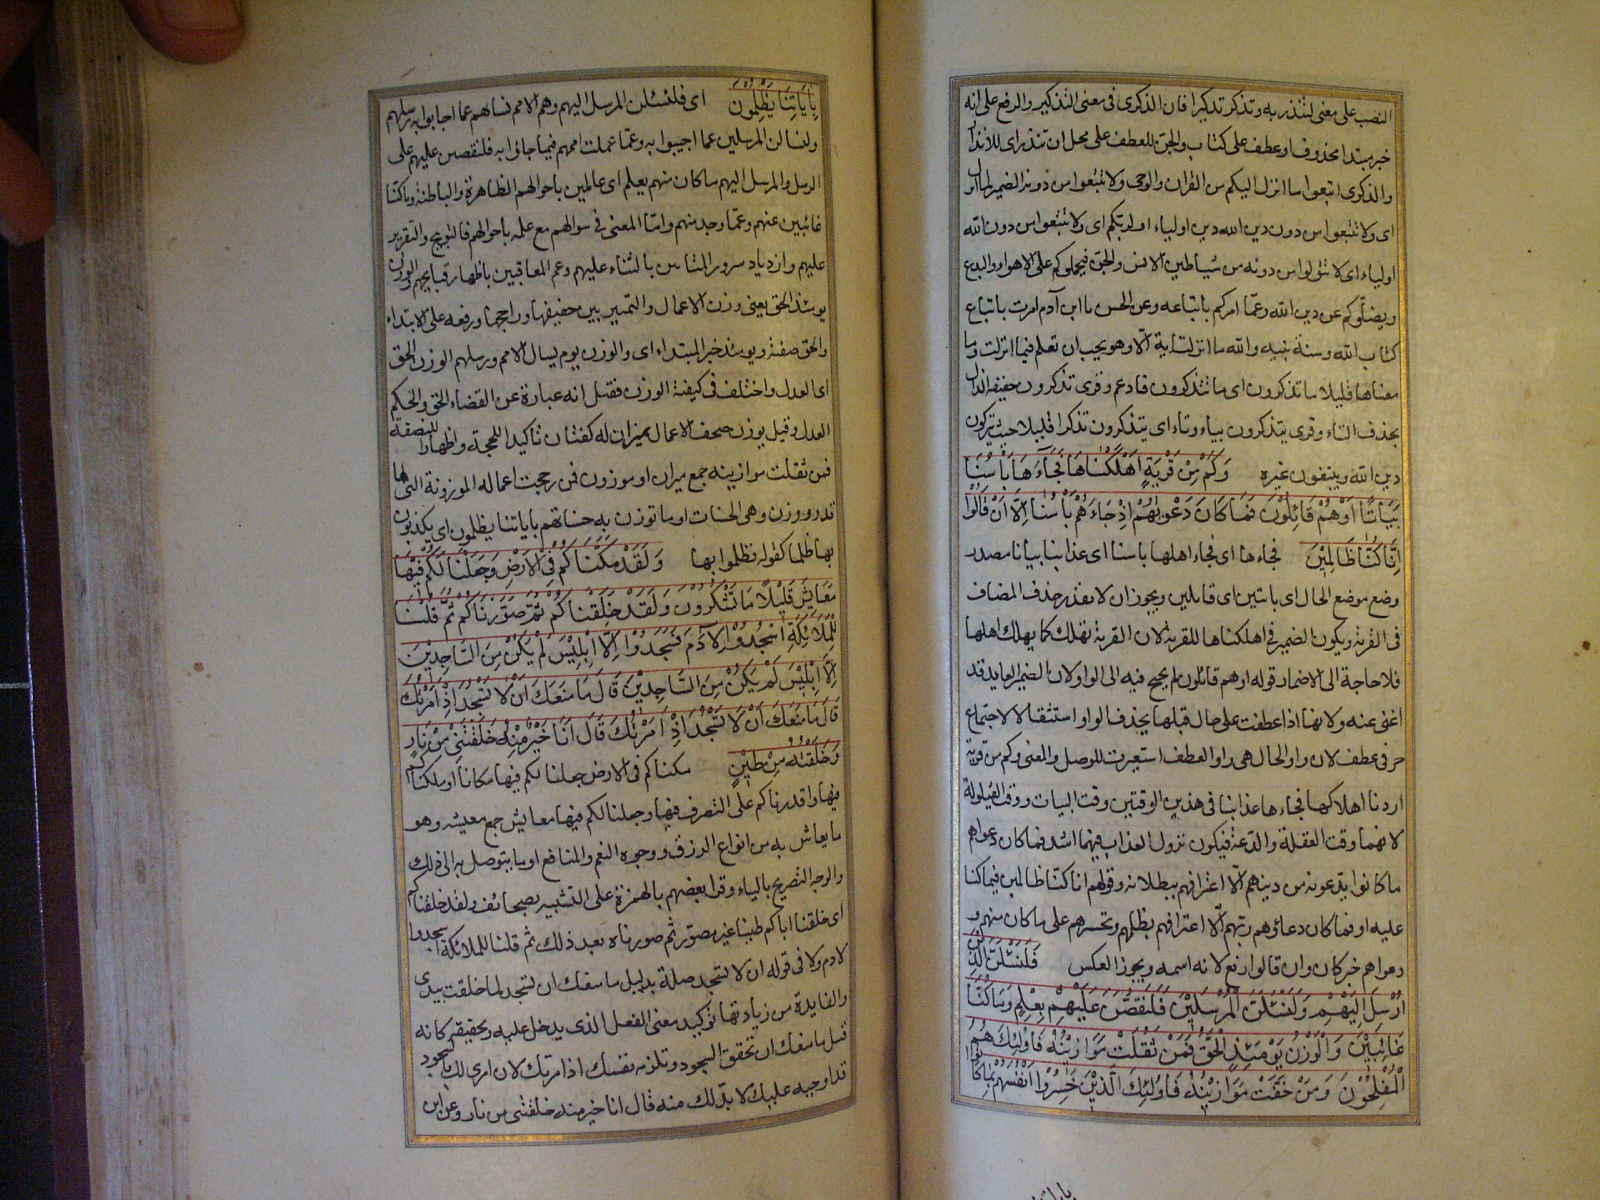 النصب على معنى لتنذر به وتذكر تذكيرا فان الذكرى فى معنى التذكير والرفع على انه
خبر مبتدا محذوف او عطف على كتاب والجر للعطف على محل ان تنذر اى للانذار
والذكرى اتبعوا ما انزل اليكم من القران والوحى ولا تتبعوا من دونه الضمير لما انزل
اى ولا تتبعوا من دون دين الله دين اولياء او لربكم اى ولا تتبعوا من دون الله
اولياء اى لا تتولوا من دونه من شياطين الانس والجن فيحملوكم على الاهواء والبدع
ويضلوكم عن دين الله وعما امركم باتباعه وعن الحسن يا ابن آدم امرت باتباع
كتاب الله وسنة نبيه والله ما انزلت اية الا وهو يحب ان تعلم فيما انزلت وما
معناها قليلا ما تذكرون اى ما تتذكرون فادغم وقرى تذكرون خفيفة الذال
بحذف التاء وقرى يتذكرون بياء وتاء اى يتذكرون تذكرا قليلا حيث يتركون
دين الله ويتبعون غيره وَكَمْ مِنْ قَرْيَةٍ اَهْلَكْنَاهَا فَجَاءَهَا بَأْسُنَا
بَيَاتًا اَوْ هُمْ قَائِلُونَ فَمَا كَانَ دَعْوٰيهُمْ اِذْ جَاءَهُمْ بَأْسُنَا اِلَّا اَنْ قَالُوا
اِنَّا كُنَّا ظَالِمِينَ فجاءها اى فجاء اهلها باسنا اى عذابنا بياتا مصدر
وضع موضع الحال اى بائتين اى قايلين ويجوز ان لا يقدر حذف المضاف
فى القرية ويكون الضمير فى اهلكناها للقرية لان القرية تهلك كما يهلك اهلها
فلا حاجة الى الاضمار قوله او هم قائلون لم يحتج فيه الى الواو لان الضمير العايد قد
اغنى عنه ولانها اذا عطفت على حال قبلها يحذف الواو استثقالا لاجتماع
حرفى عطف لان واو الحال هى واو العطف استعيرت للوصل والمعنى وكم من قرية
اردنا اهلاكها فجاءها عذابنا فى هذين الوقتين وقت البيات ووقت القيلولة
لانهما وقت الغفلة والدعة فيكون نزول العذاب فيهما اشد فما كان دعواهم
ما كانوا يدعونه من دينهم الا اعترافهم ببطلانه وقولهم انا كنا ظالمين فيما كنا
عليه او فما كان دعاؤهم ربهم الا اعترافهم بظلمهم وتحسرهم على ما كان منهم و
دعواهم خبر كان وان قالوا رفع لانه اسمه ويجوز العكس فَلَنَسْئَلَنَّ الَّذِينَ
اُرْسِلَ اِلَيْهِمْ وَلَنَسْئَلَنَّ الْمُرْسَلِينَ فَلَنَقُصَّنَّ عَلَيْهِمْ بِعِلْمٍ وَمَا كُنَّا
غَائِبِينَ وَالْوَزْنُ يَوْمَئِذٍ الْحَقُّ فَمَنْ ثَقُلَتْ مَوَازِينُهُ فَاُولٰئِكَ هُمُ
الْمُفْلِحُونَ وَمَنْ خَفَّتْ مَوَازِينُهُ فَاُولٰئِكَ الَّذِينَ خَسِرُوا اَنْفُسَهُمْ بِمَا كَانُوا
بِاٰيَاتِنَا يَظْلِمُونَ اى فلنسئلن المرسل اليهم وهم الامم نسالهم عما اجابوا به رسلهم
ولنسالن المرسلين عما اجيبوا به وعما عملت اممهم فيما جاؤا به فلنقصن عليهم على
الرسل والمرسل اليهم ما كان منهم بعلم اى عالمين باحوالهم الظاهرة والباطنة وما كنا
غائبين عنهم وعما وجد منهم واما المعنى فى سوالهم مع علمه باحوالهم فالتوبيخ والتقرير
عليهم وازدياد سرور المثابين بالثناء عليهم وغم المعاقبين باظهار قبايحهم والوزن
يومئذ الحق يعنى وزن الاعمال والتمييز بين خفيفها وراجحها ورفعه على الابتداء
والحق صفته ويومئذ خبر المبتداء اى والوزن يوم يسال الامم ورسلهم الوزن الحق
اى العدل واختلف فى كيفية الوزن فقيل انه عبارة عن القضاء الحق والحكم
العدل وقيل يوزن صحف الاعمال بميزان له كفتان تأكيدا للحجة واظهارا للنصفة
فمن ثقلت موازينه جمع ميزان او موزون فمن رجحت اعماله الموزونة التى لها
قدر ووزن وهى الحسنات او ما توزن به حسناتهم باياتنا يظلمون اى يكذبون
بها ظلما كقوله فظلموا بها وَلَقَدْ مَكَّنَّاكُمْ فِى الْاَرْضِ وَجَعَلْنَا لَكُمْ فِيهَا
مَعَايِشَ قَلِيلًا مَا تَشْكُرُونَ وَلَقَدْ خَلَقْنَاكُمْ ثُمَّ صَوَّرْنَاكُمْ ثُمَّ قُلْنَا
لِلْمَلَائِكَةِ اسْجُدُوا لِاٰدَمَ فَسَجَدُوا اِلَّا اِبْلِيسَ لَمْ يَكُنْ مِنَ السَّاجِدِينَ
اِلَّا اِبْلِيسَ لَمْ يَكُنْ مِنَ السَّاجِدِينَ قَالَ مَا مَنَعَكَ اَنْ لَا تَسْجُدَ اِذْ اَمَرْتُكَ
قَالَ مَا مَنَعَكَ اَنْ لَا تَسْجُدَ اِذْ اَمَرْتُكَ قَالَ اَنَا خَيْرٌ مِنْهُ خَلَقْتَنِى مِنْ نَارٍ
وَخَلَقْتَهُ مِنْ طِينٍ مكناكم فى الارض جعلنا لكم فيها مكانا او ملكناكم
فيها واقدرناكم على التصرف فيها وجعلنا لكم فيها معايش جمع معيشة وهو
ما يعاش به من انواع الرزق ووجوه النعم والمنافع او ما يتوصل به الى ذلك
والوجه التصريح بالياء وقرا بعضهم بالهمزة على التشبيه بصحائف ولقد خلقناكم
اى خلقنا اباكم طينا غير مصور ثم صورناه بعد ذلك ثم قلنا للملائكة اسجدوا
لادم ولا فى قوله ان لا تسجد صلة بدليل ما منعك ان تسجد لما خلقت بيدى
والفايدة من زيادتها توكيد معنى الفعل الذى يدخل عليه وتحقيقه كانه
قيل ما منعك ان تحقق السجود وتلزمه نفسك اذ امرتك لان امرى لك بالسجود
قد اوجبه عليك لا بد لك منه قال انا خير منه خلقتنى من نار وعن ابن